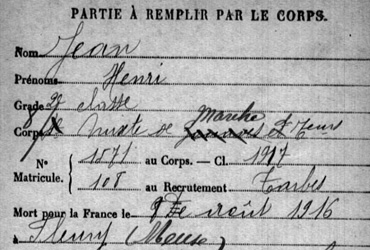 PARTIE À REMPLIR PAR LE CORPS.
Nom Jean
Prénoms Henri
Grade 2e classe
Corps 8e Mixte de Marche
N° Matricule. 1571 au Corps. — Cl. 1917
108 au Recrutement Tarbes
Mort pour la France le 9 août 1916
à Fleury (Meuse)